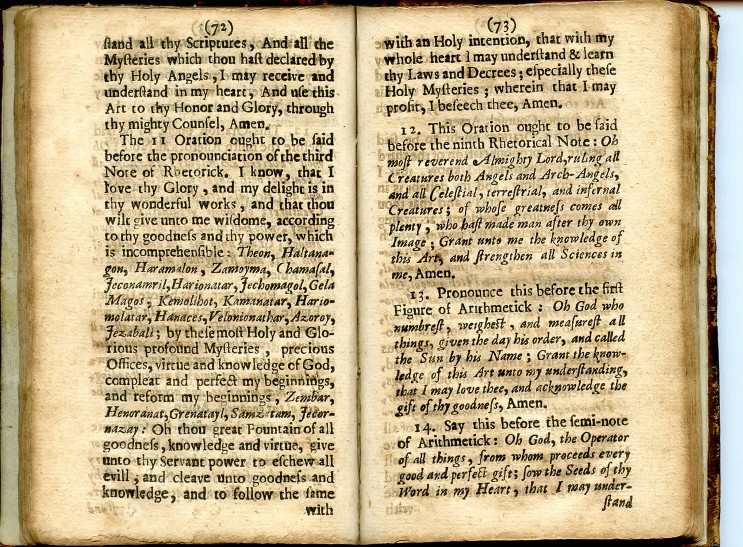 (72)
ſtand all thy Scriptures, And all the
Myſteries which thou haſt declared by
thy Holy Angels, I may receive and
underſtand in my heart, And uſe this
Art to thy Honor and Glory, through
thy mighty Counſel, Amen.
The 11 Oration ought to be ſaid
before the pronounciation of the third
Note of Rhetorick. I know, that I
love thy Glory, and my delight is in
thy wonderful works, and that thou
wilt give unto me wiſdome, according
to thy goodneſs and thy power, which
is incomprehenſible: Theon, Haltana-
gon, Haramalon, Zamoyma, Chamaſal,
Jeconamril, Harionatar, Jechomagol, Gela
Magos, Kemolihot, Kamanatar, Hario-
molatar, Hanaces, Velonionathar, Azoroy,
Jezabali; by theſe moſt Holy and Glo-
rious profound Myſteries, precious
Offices, virtue and knowledge of God,
compleat and perfect my beginnings,
and reform my beginnings, Zembar,
Henoranat, Grenatayl, Samzatam, Jecor-
nazay: Oh thou great Fountain of all
goodneſs, knowledge and virtue, give
unto thy Servant power to eſchew all
evill, and cleave unto goodneſs and
knowledge, and to follow the ſame
with
(73)
with an Holy intention, that with my
whole heart I may underſtand & learn
thy Laws and Decrees; eſpecially theſe
Holy Myſteries; wherein that I may
profit, I beſeech thee, Amen.
12. This Oration ought to be ſaid
before the ninth Rhetorical Note: Oh
moſt reverend Almighty Lord, ruling all
Creatures both Angels and Arch-Angels,
and all Celeſtial, terreſtrial, and infernal
Creatures; of whoſe greatneſs comes all
plenty, who haſt made man after thy own
Image; Grant unto me the knowledge of
this Art, and ſtrengthen all Sciences in
me, Amen.
13. Pronounce this before the firſt
Figure of Arithmetick: Oh God who
numbreſt, weigheſt, and meaſureſt all
things, given the day his order, and called
the Sun by his Name; Grant the know-
ledge of this Art unto my underſtanding,
that I may love thee, and acknowledge the
gift of thy goodneſs, Amen.
14. Say this before the ſemi-note
of Arithmetick: Oh God, the Operator
of all things, from whom proceeds every
good and perfect gift; ſow the Seeds of thy
Word in my Heart, that I may under-
ſtand